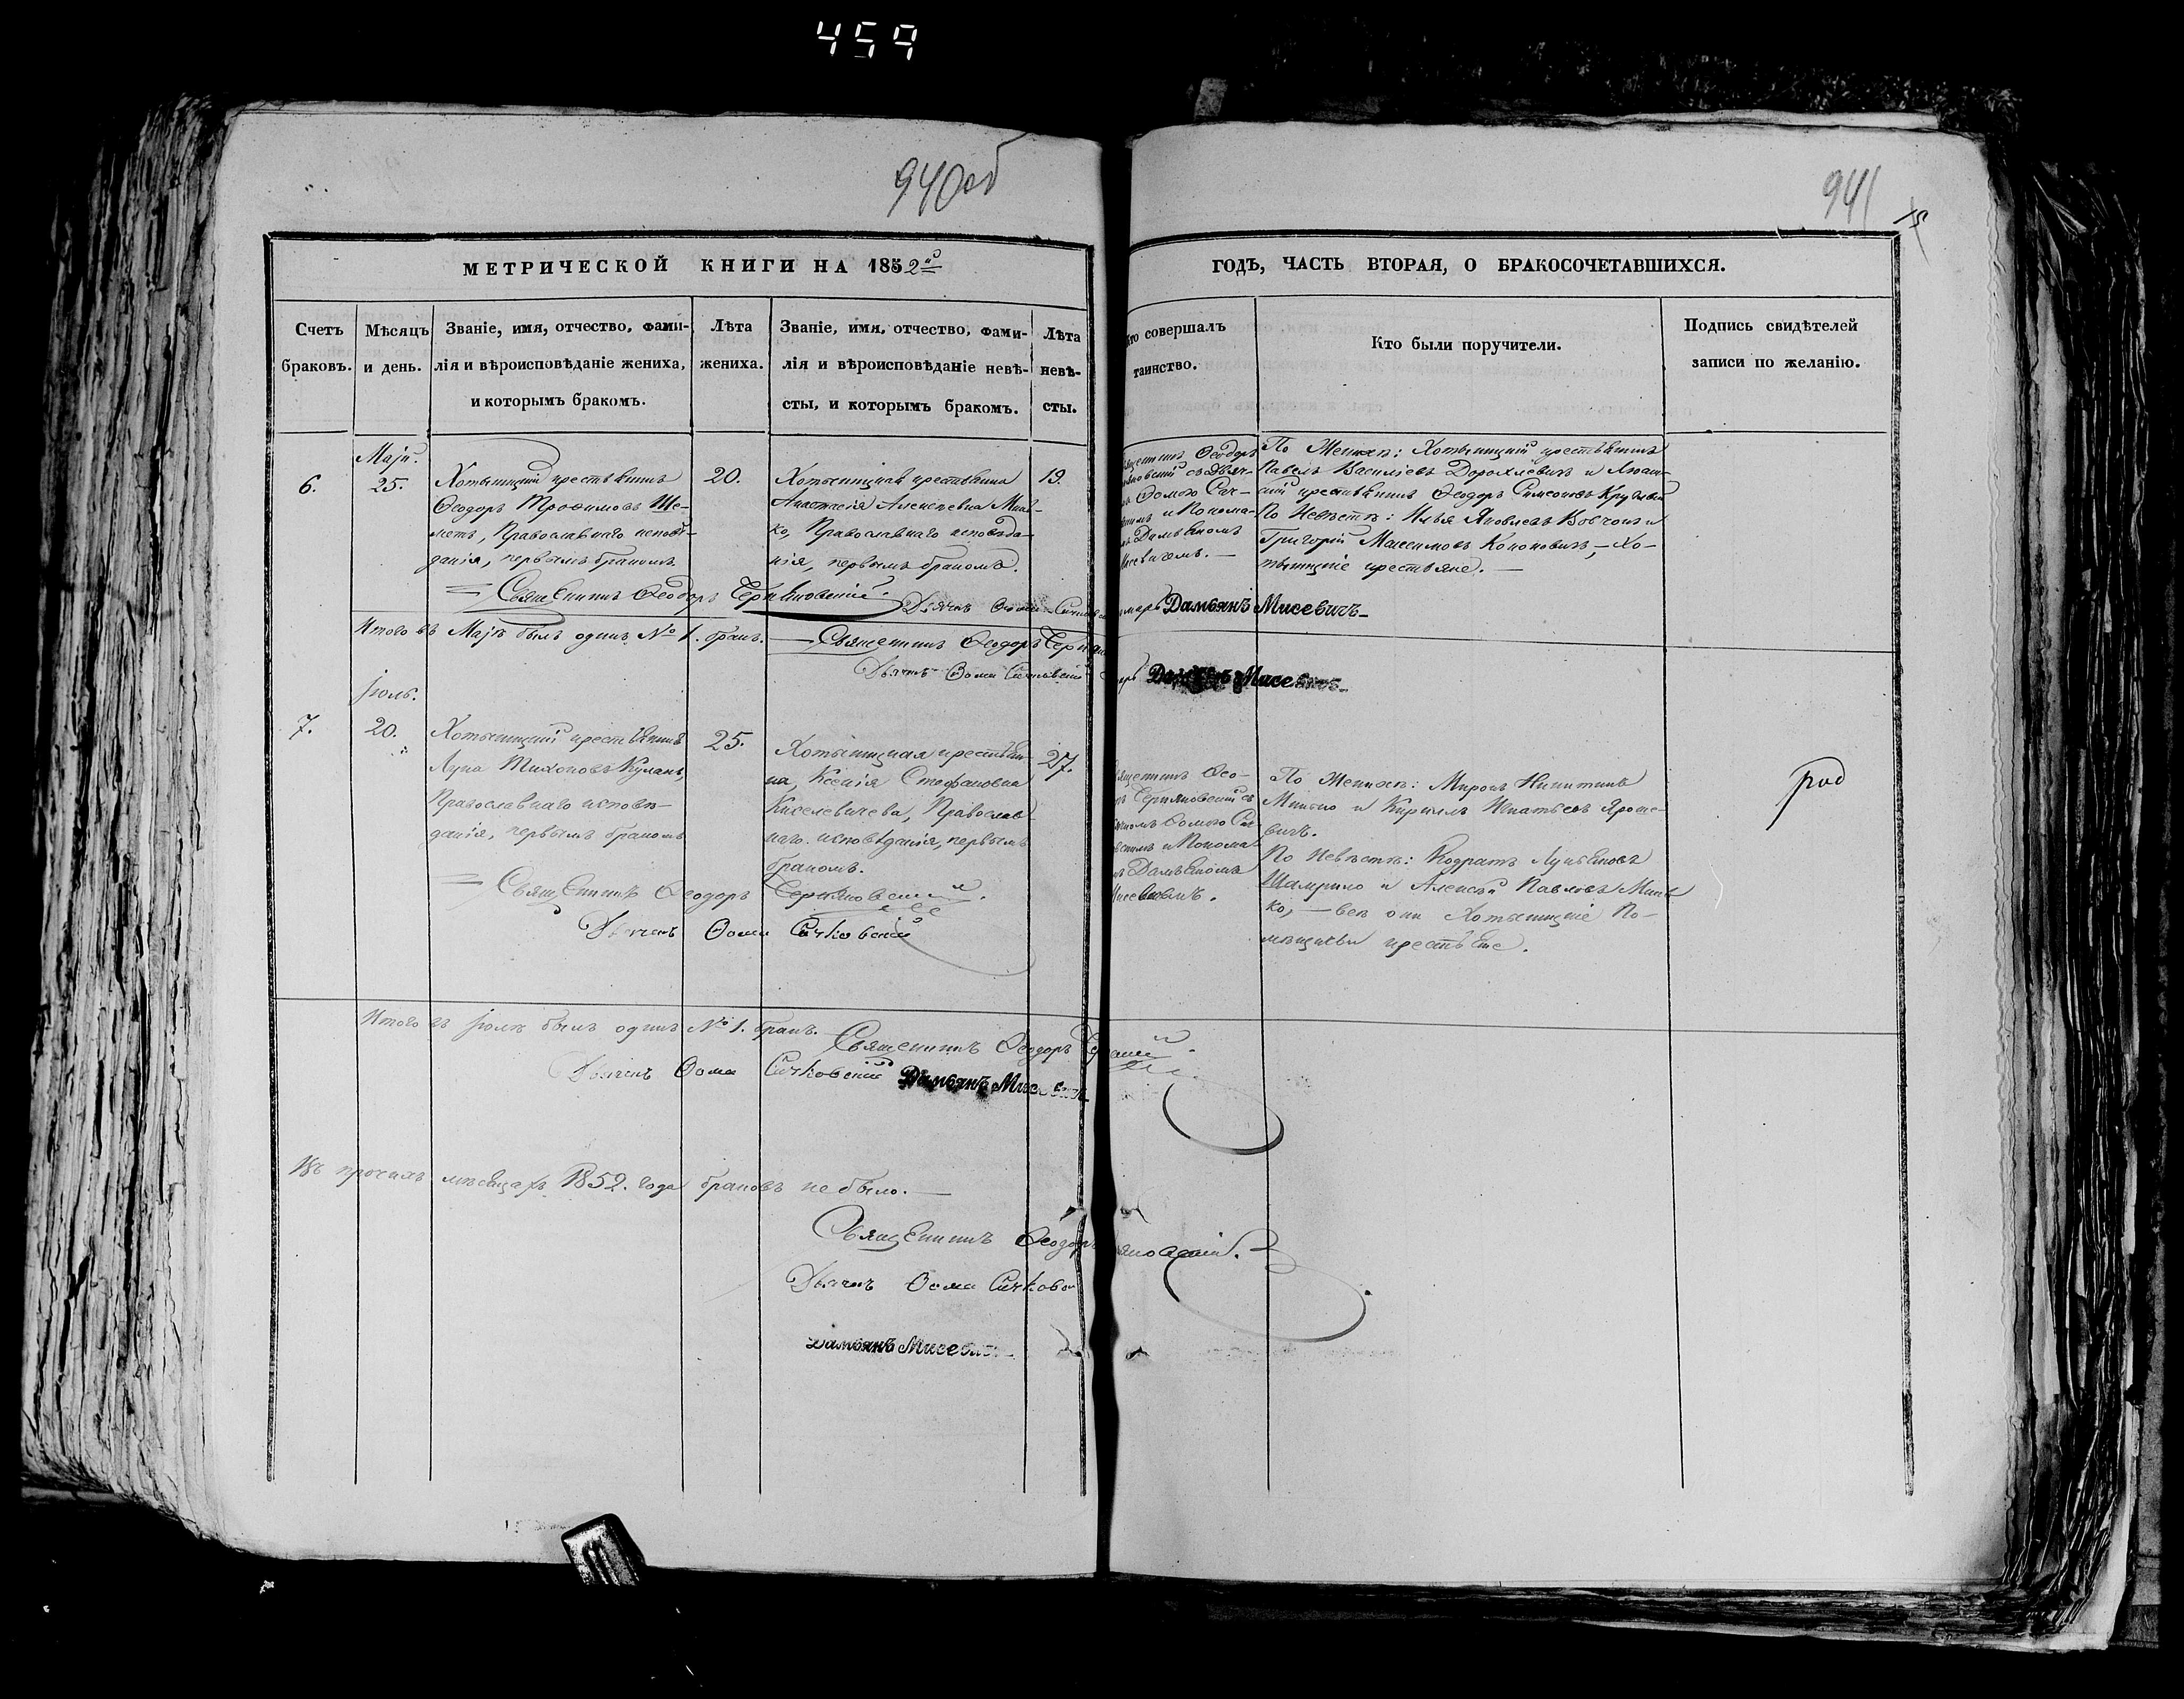 459
940об
941
МЕТРИЧЕСКОЙ КНИГИ НА 1852й
ГОДЪ, ЧАСТЬ ВТОРАЯ, О БРАКОСОЧЕТАВШИХСЯ.
Счетъ
браковъ.
Мѣсяцъ
и день.
Званіе, имя, отчество, фами-
лія и вѣроисповѣданіе жениха,
и которымъ бракомъ.
Лѣта
жениха.
Званіе, имя, отчество, фами-
лія и вѣроисповѣданіе невѣ-
сты, и которымъ бракомъ.
Лѣта
невѣ-
сты.
Кто совершалъ
таинство.
Кто были поручители.
Подпись свидѣтелей
записи по желанію.
6.
Маjя.
25.
Хотыницкій крестьянинъ
Ѳеодоръ Трофимовъ Ше-
метъ, Православнаго исповѣ-
данія, первымъ бракомъ
20.
Хотыницкая крестьянка
Анастасія Алексѣевна Мин-
ко, Православнаго исповѣда-
нія, первымъ бракомъ.
19.
Ѳеодоръ
съ Дьяч-
Ѳомою Сач-
и Понома-
Дамьяномъ
По Женихѣ: Хотыницкій крестьянинъ
Павелъ Василіевъ Дорохлевичъ и
крестьянинъ Ѳеодоръ Симеоновъ
По Невѣстѣ: Илья Яковлевъ и
Григорій Максимовъ Кононовичъ, — Хо-
тыницкіе крестьяне. —
Священникъ Ѳеодоръ Терпиловскій
Дьячекъ Ѳома
Дамьянъ Мисевичъ
Итого въ Маjѣ былъ одинъ № 1. бракъ. — Священникъ Ѳеодоръ
Дьячекъ Ѳома
Дамьянъ Мисевичъ
7.
Jюль.
20.
Хотыницкій крестьянинъ
Лука Тихоновъ Кулакъ,
Православнаго исповѣ-
данія, первымъ бракомъ
25.
Хотыницкая крестьян-
ка, Ксенія Стефановна
Киселевичева, Православ-
наго исповѣданія, первымъ
бракомъ.
27.
Ѳео-
Ѳомою
и Понома-
Дамьяномъ
По Женихѣ: Миронъ Никитинъ
Минько и Кириллъ Игнатьевъ Яроше-
вичъ.
По Невѣстѣ: Кодратъ Лукьяновъ
Шамрило и Алексѣй Павловъ Минь-
ко, — всѣ они Хотыницкіе По-
мѣщичьи крестьяне.
Священникъ Ѳеодоръ
Дьячекъ Ѳома Сачковскій
Итого въ Jюлѣ былъ одинъ № 1. бракъ.
Священникъ Ѳеодоръ
Дьячекъ Ѳома Сачковскій Дамьянъ Мисевичъ
Въ прочихъ мѣсяцахъ 1852. года браковъ не было. —
Священникъ Ѳеодоръ
Дьячекъ Ѳома
Дамьянъ Мисевичъ